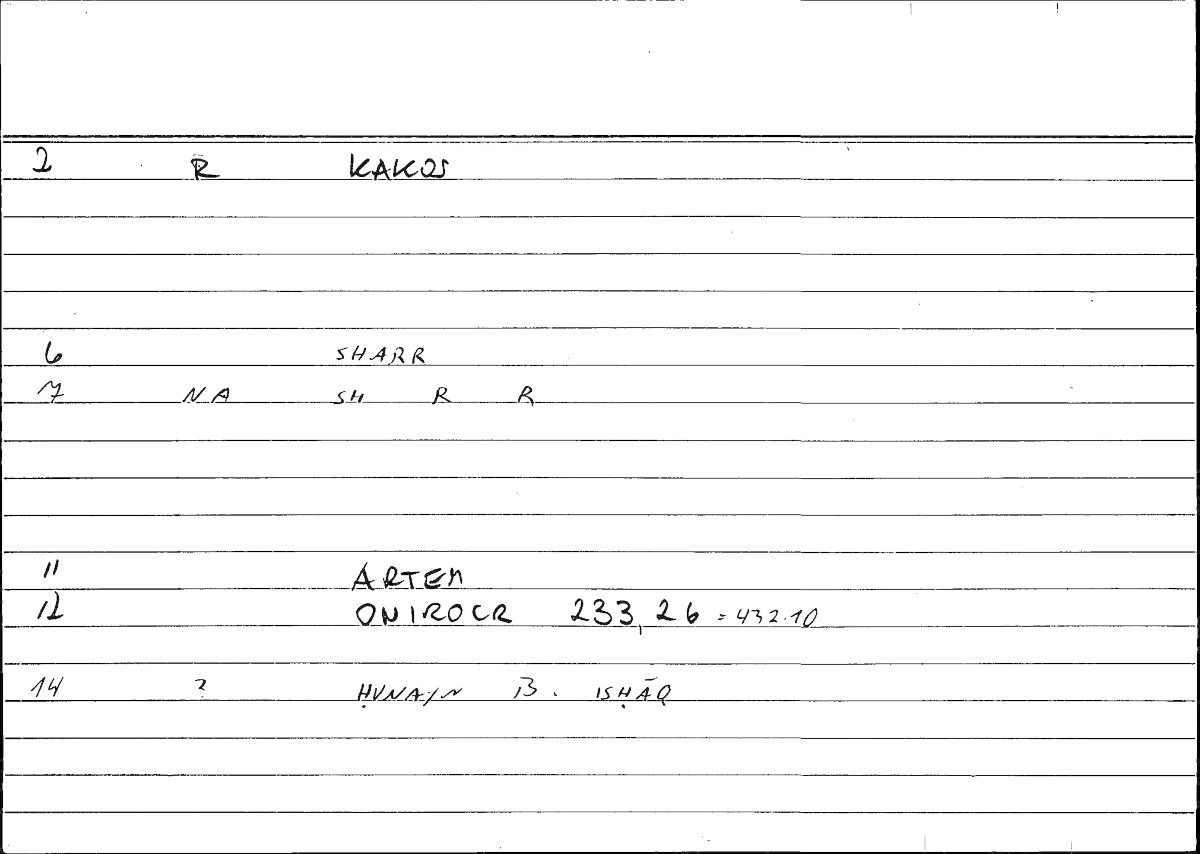 2 R KAKOS
6 SHARR
7 NA SH R R
11 ARTEM
12 ONIROCR 233,26 = 432.10
14 ? ḤUNAYN B. ISḤĀQ